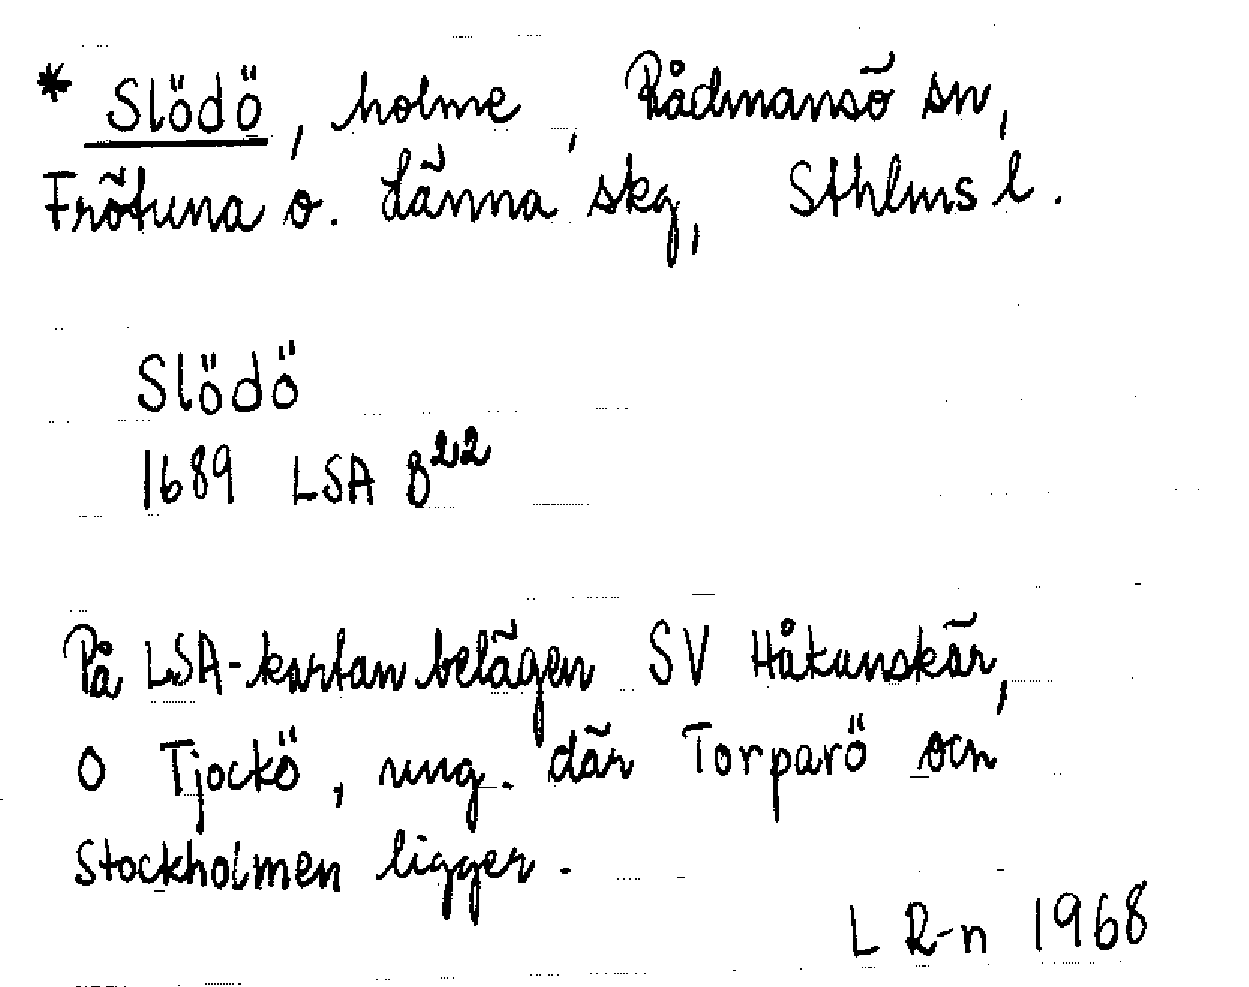 * Slödö, holme, Rådmansö sn,
Frötuna o. Länna skg, Sthlms l.
Slödö
1689 LSA B²²
På LSA-kartan belägen SV Håkanskär,
O Tjockö, ung. där Torparö och
Stockholmen ligger.
L R-n 1968